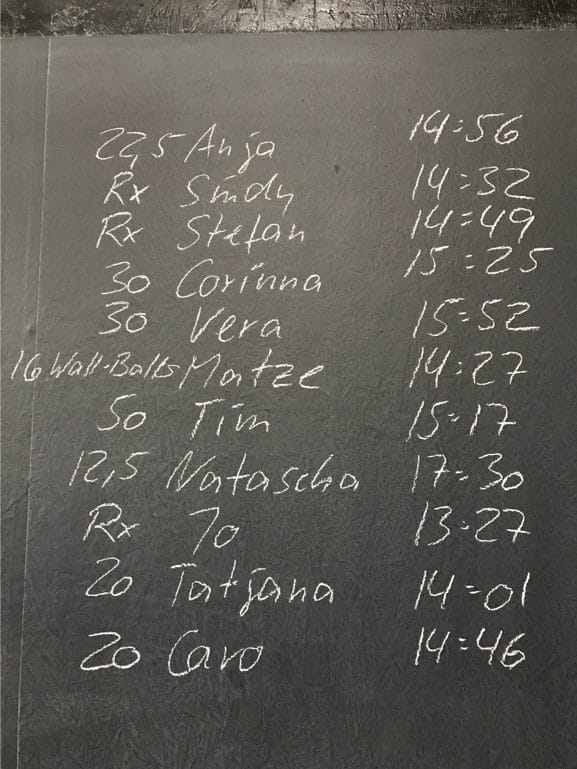 22,5 Anja 14:56
Rx Sindy 14:32
Rx Stefan 14:49
30 Corinna 15:25
30 Vera 15:52
16 Wall-Balls Matze 14:27
50 Tim 15:17
12,5 Natascha 17:30
Rx Jo 13:27
20 Tatjana 14:01
20 Caro 14:46